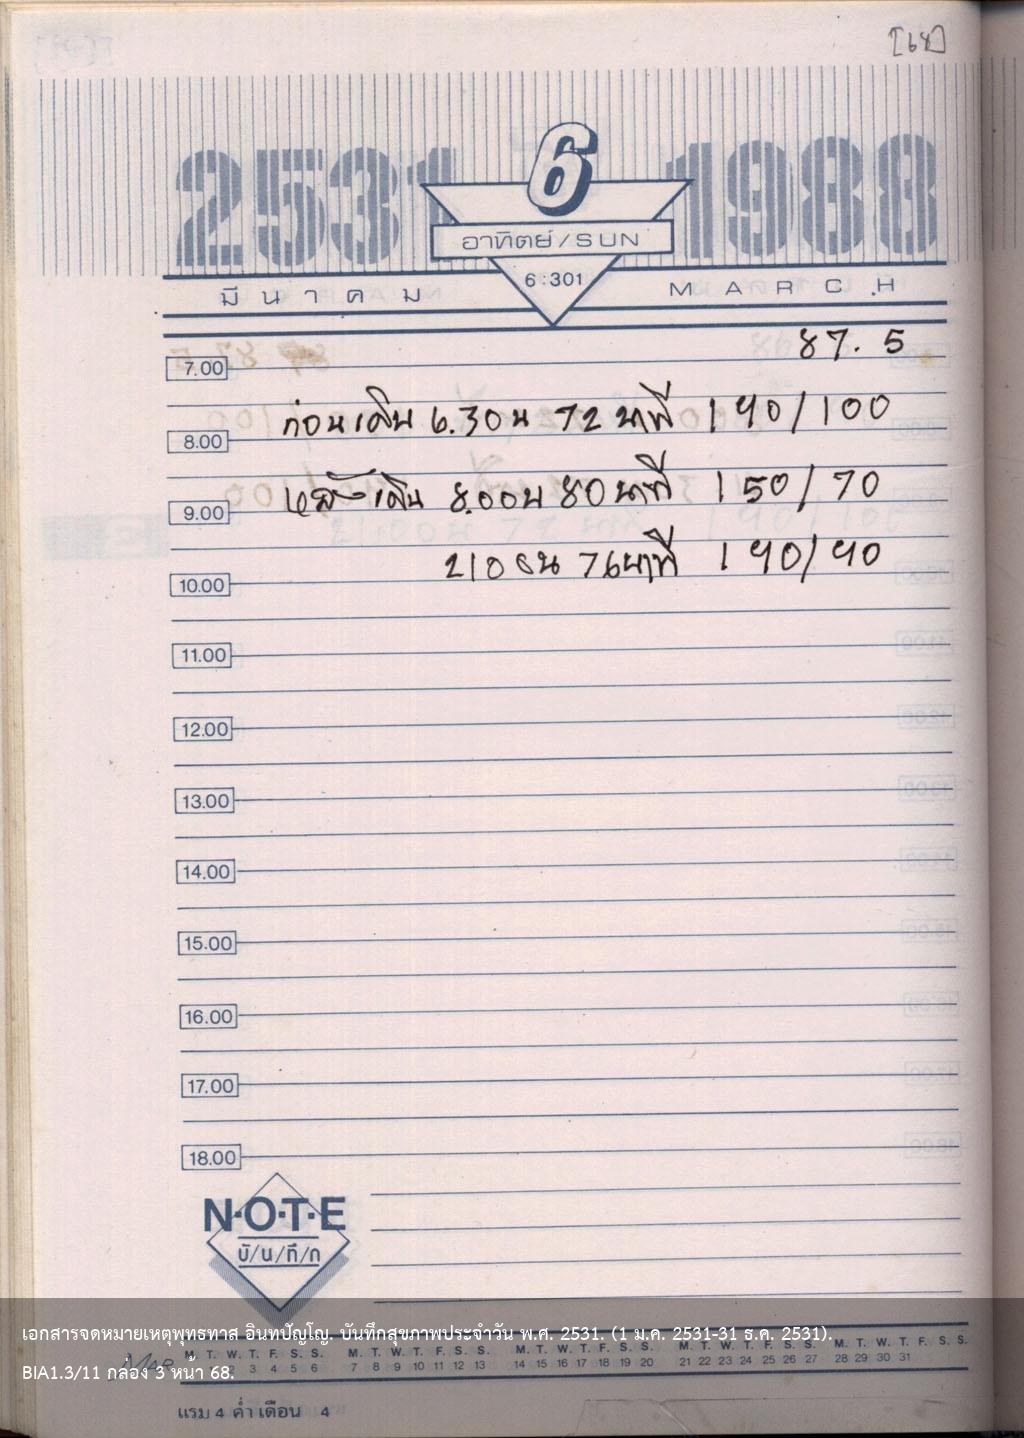 [68]
2531 6 1988
อาทิตย์/SUN
6:301
มีนาคม MARCH
87.5
7.00
ก่อนเดิน 6.30น 72 นาที 190/100
8.00
หลังเดิน 8.00น 80 นาที 150/70
9.00
76 นาที 190/90
10.00
11.00
12.00
13.00
14.00
15.00
16.00
17.00
18.00
N·O·T·E
บั/น/ทึ/ก
เอกสารจดหมายเหตุพุทธทาส อินทปัญโญ. บันทึกสุขภาพประจำวัน พ.ศ. 2531. (1 ม.ค. 2531-31 ธ.ค. 2531).
M. T. W. T. F. S. S. M. T. W. T. F. S. S. M. T. W. T. F. S. S. M. T. W. T. F. S. S. M. T. W. T. F. S. S.
2 3 4 5 6 7 8 9 10 11 12 13 14 15 16 17 18 19 20 21 22 23 24 25 26 27 28 29 30 31
BIA1.3/11 กล่อง 3 หน้า 68.
แรม 4 ค่ำ เดือน 4